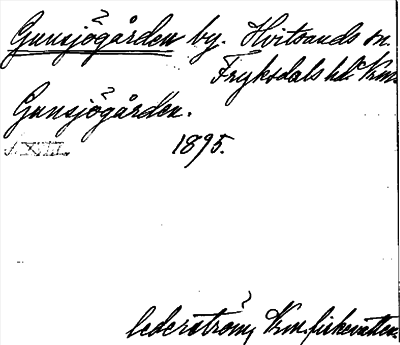 Gunsjögården by. Hvitsands sn.
Fryksdals hd Krm.
Gunsjögården.
1895.
Cederström, Krm. fiskevatten.